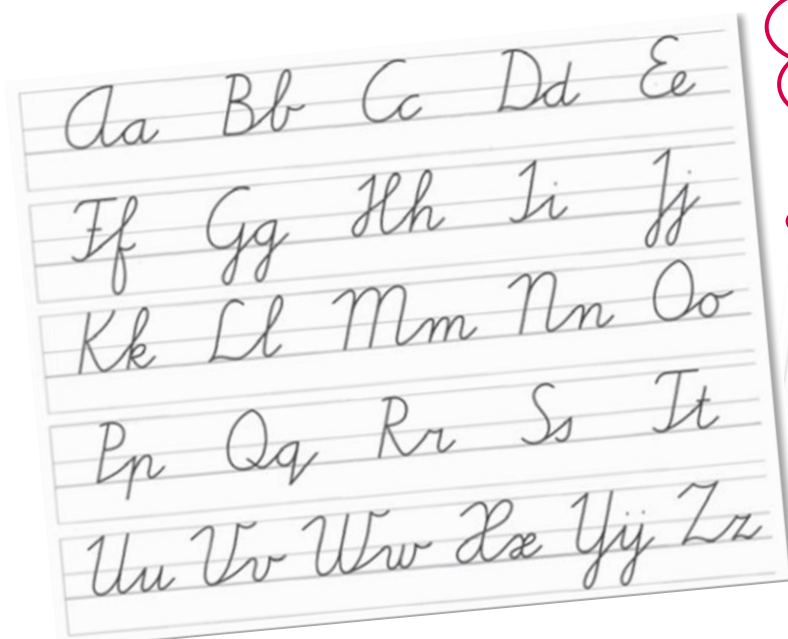 Aa Bb Cc Dd Ee
Ff Gg Hh Ii Jj
Kk Ll Mm Nn Oo
Pp Qq Rr Ss Tt
Uu Vv Ww Xx Yÿ Zz